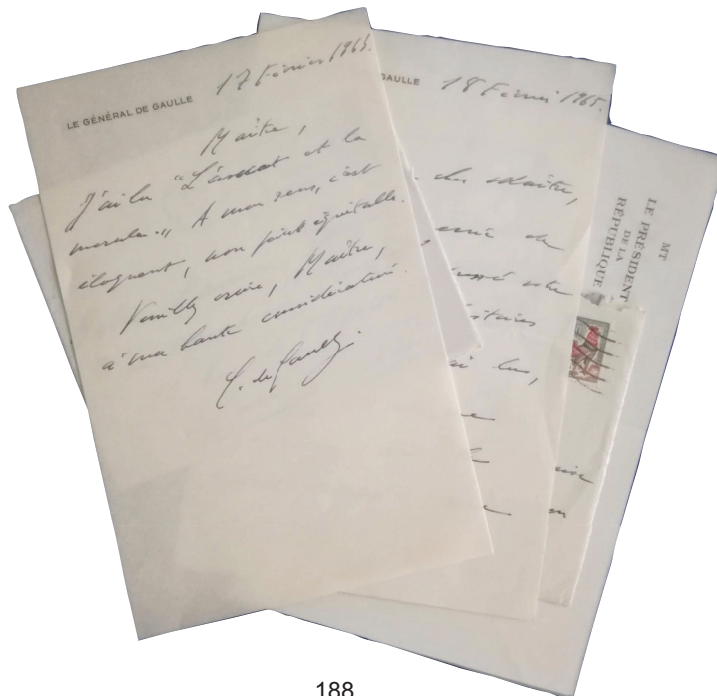 LE GÉNÉRAL DE GAULLE
17 Février 1965.
Maître,
J'ai lu "L'avocat et la
morale". A mon sens, c'est
éloquent, non point équitable.
Veuillez croire, Maître,
à ma haute considération.
C. de Gaulle.
GAULLE
18 Février 1965.
Maître,
de
votre
ai lu,
MT
LE PRÉSIDENT
DE LA
RÉPUBLIQUE
188